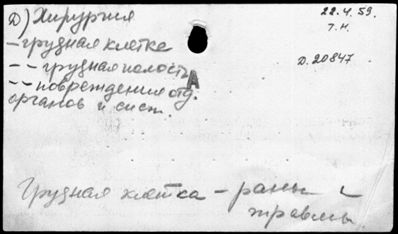 Д) Хирургия
22.4.59.
Т.Н.
– грудная клетка
Д.20847
– – грудная полость
А
– – повреждения отд.
органов и сист.
Грудная клетка – раны и
травмы